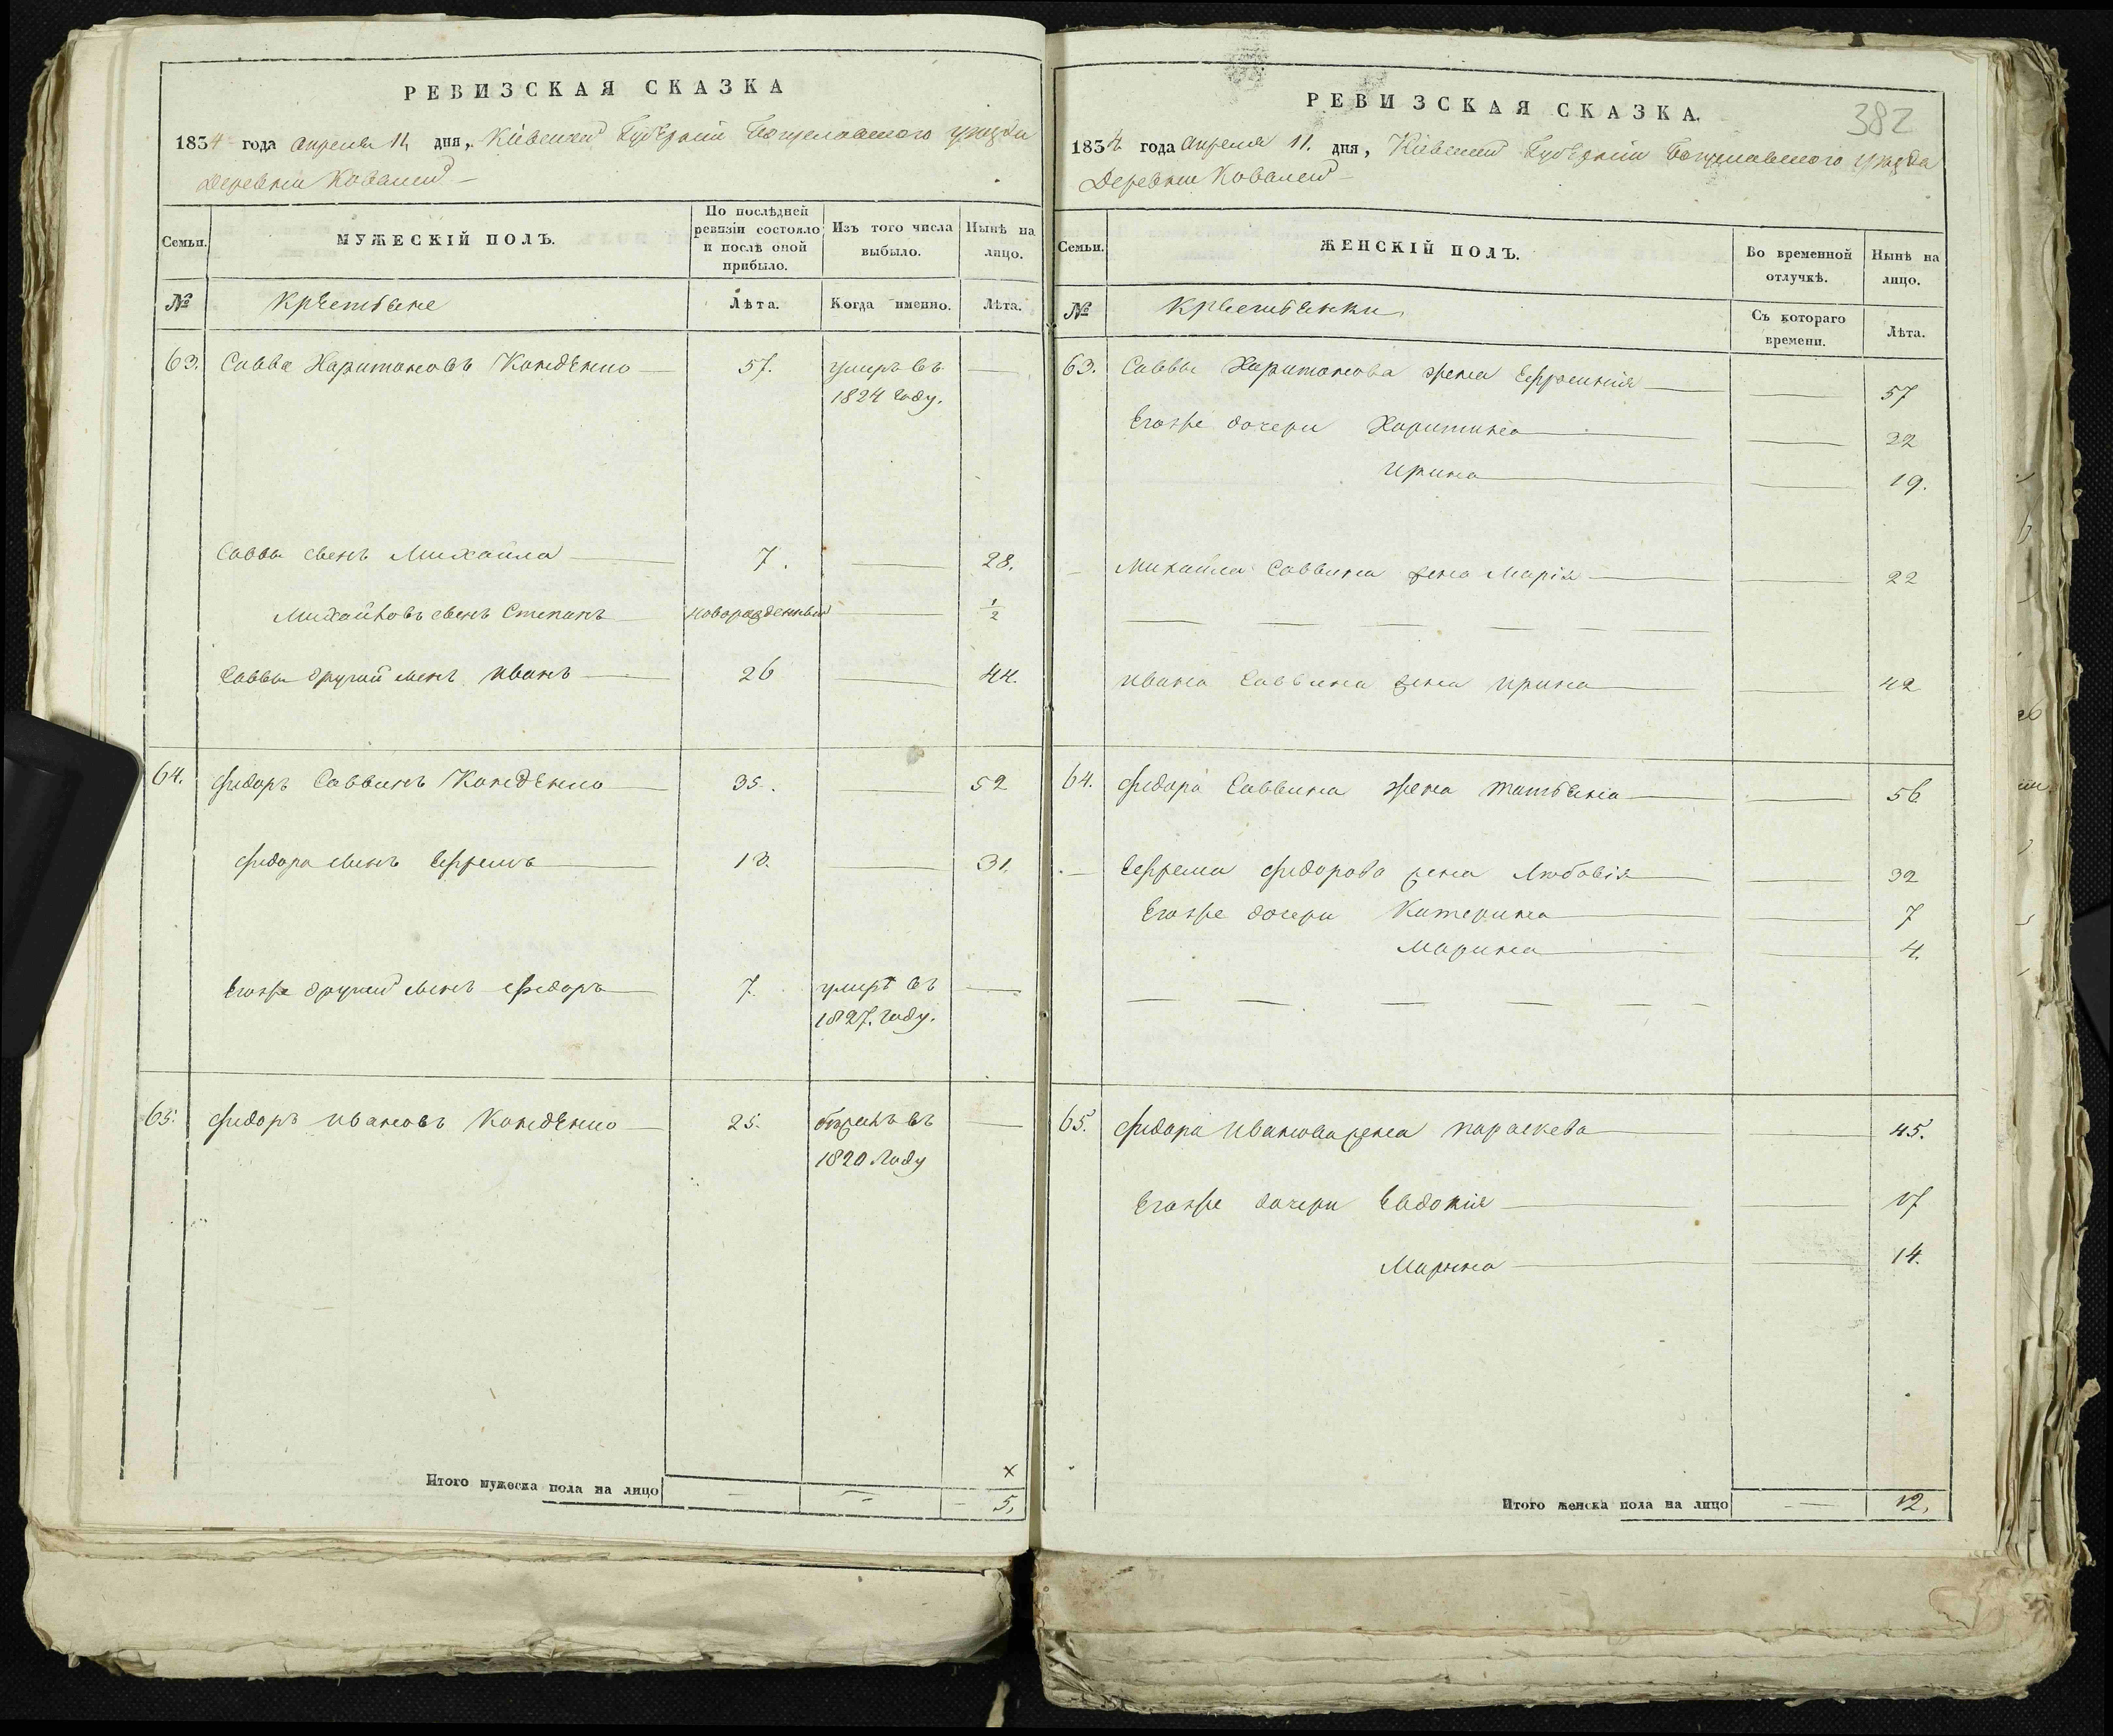 РЕВИЗСКАЯ СКАЗКА
1834 года апреля 11 дня, Кіевской Губерніи Богуславского уезда
Деревни Ковалей
Семьи.
МУЖЕСКІЙ ПОЛЪ.
По послѣдней ревизіи состояло и послѣ оной прибыло.
Изъ того числа выбыло.
Нынѣ на лицо.
№
Крестьяне
Лѣта.
Когда именно.
Лѣта.
63. Савва Харитоновъ 57. умеръ въ 1824 году.
Саввы сынъ Михайла 7. 28.
Михайловъ сынъ Степанъ новорожденный 1/2
Саввы другий сынъ Иванъ 26 44.
64. Федоръ Саввинъ 35. 52
Федора сынъ Ефремъ 13. 31.
Егоже другий сынъ Федоръ 7. умеръ въ 1827. году.
65. Федоръ Ивановъ 25. въ 1820 году
Итого мужеска пола на лицо 5,
382
РЕВИЗСКАЯ СКАЗКА.
1834 года апреля 11. дня, Кіевской Губерніи Богуславского уезда
Деревни Ковалей
Семьи.
ЖЕНСКІЙ ПОЛЪ.
Во временной отлучкѣ.
Нынѣ на лицо.
№
Крестьянки
Съ котораго времени.
Лѣта.
63. Саввы Харитонова жена Ефросинія 57
Егоже дочери Харитина 22
Ирина 19.
Михайла Саввина жена Марія 22
Ивана Саввина жена Ирина 42
64. Федора Саввина жена Татьяна 56
Ефрема Федорова жена Любовія 32
Егоже дочери Катерина 7
Марина 4.
65. Федора Иванова жена Параскева 45.
Егоже дочери Евдокія 17
Марина 14.
Итого женска пола на лицо 12,